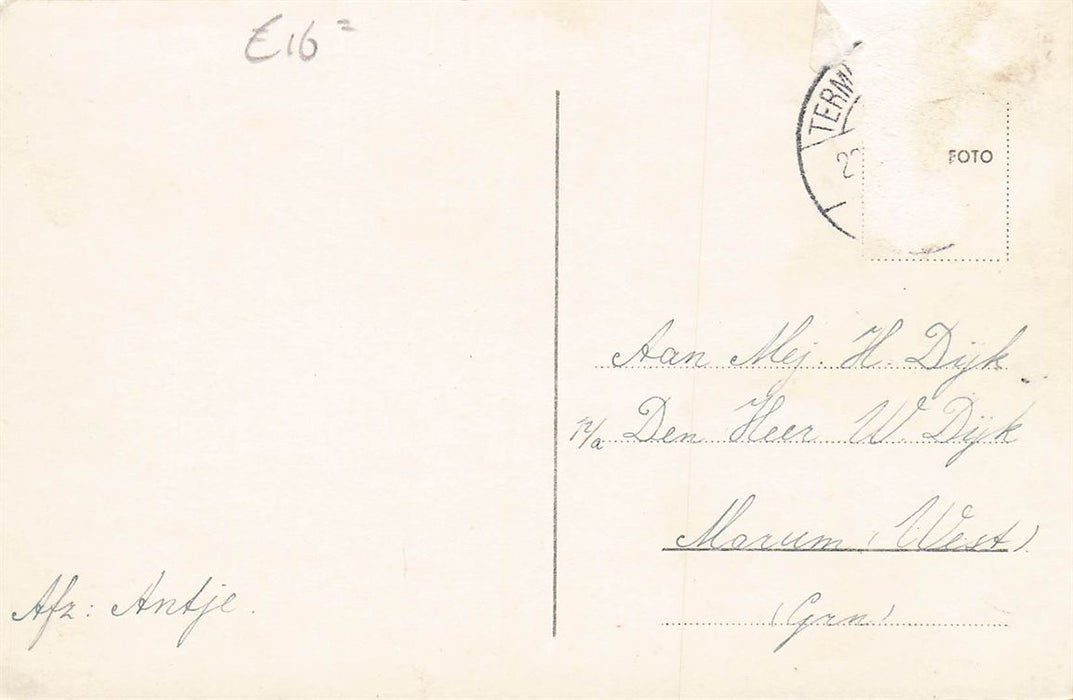 E16=
TERM
2
FOTO
Aan Mej. H. Dijk
p/a Den Heer W. Dijk
Marum (West)
(Grn)
Afz: Antje.